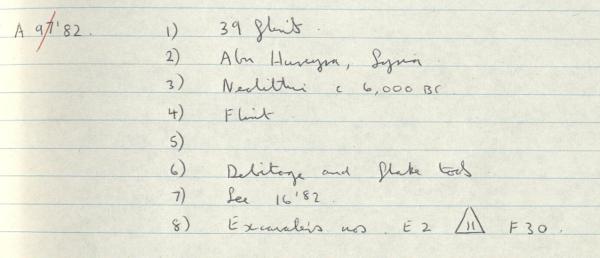 A 97'82. 1) 39 flints.
2) Abu Hureyra, Syria
3) Neolithic c 6,000 BC
4) Flint
5)
6) Debitage and flake tools
7) See 16'82.
8) Excavators nos. E2 11 F30.